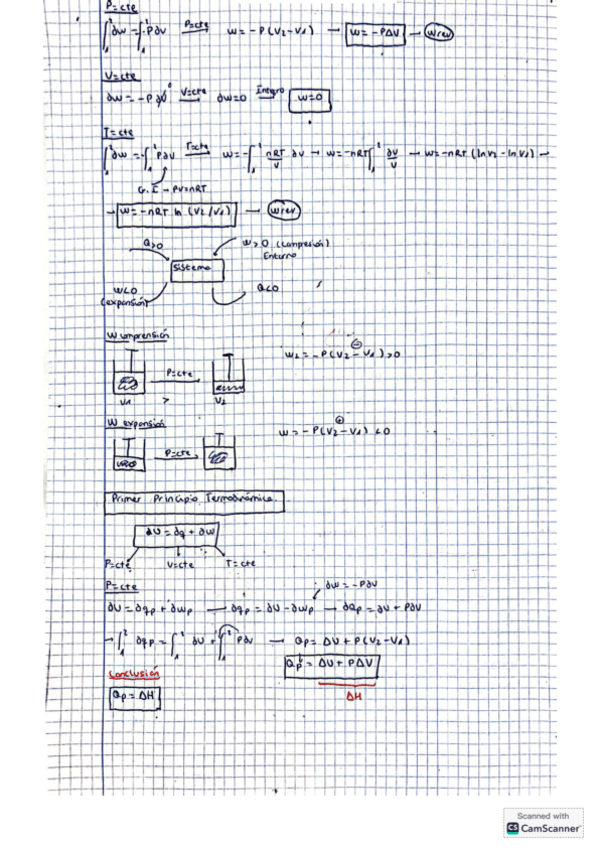 P=cte
∫₁² ∂w = ∫₁² -P∂V P=cte → w = -P(V2-V1) → w = -PΔV → wrev
V=cte
∂w = -P ∂V⁰ V=cte → ∂w=0 Integro → w=0
T=cte
∫₁² ∂w = -∫₁² P∂V T=cte → w = -∫₁² nRT/V ∂V → w = -nRT ∫₁² ∂V/V → w = -nRT (lnV2 - lnV1) →
G.I → PV=nRT
→ w = -nRT ln (V2/V1) → wrev
Q>0 w>0 (compresión)
Entorno
Sistema
w<0 Q<0
(expansión)
W compresión
P=cte
V1 > V2
w1 = -P(V2 - V1) > 0
⊖
W expansión
P=cte
⊕
w = -P(V2-V1) <0
Primer Principio Termodinámica.
∂U = ∂q + ∂w
P=cte V=cte T=cte
P=cte ∂w = -P∂V
∂U = ∂qp + ∂wp → ∂qp = ∂U - ∂wp → ∂Qp = ∂U + P∂V
→ ∫₁² ∂qp = ∫₁² ∂U + ∫₁² P∂V → Qp = ΔU + P(V2-V1)
Qp = ΔU + PΔV
Conclusión
ΔH
Qp = ΔH
Scanned with
CS CamScanner